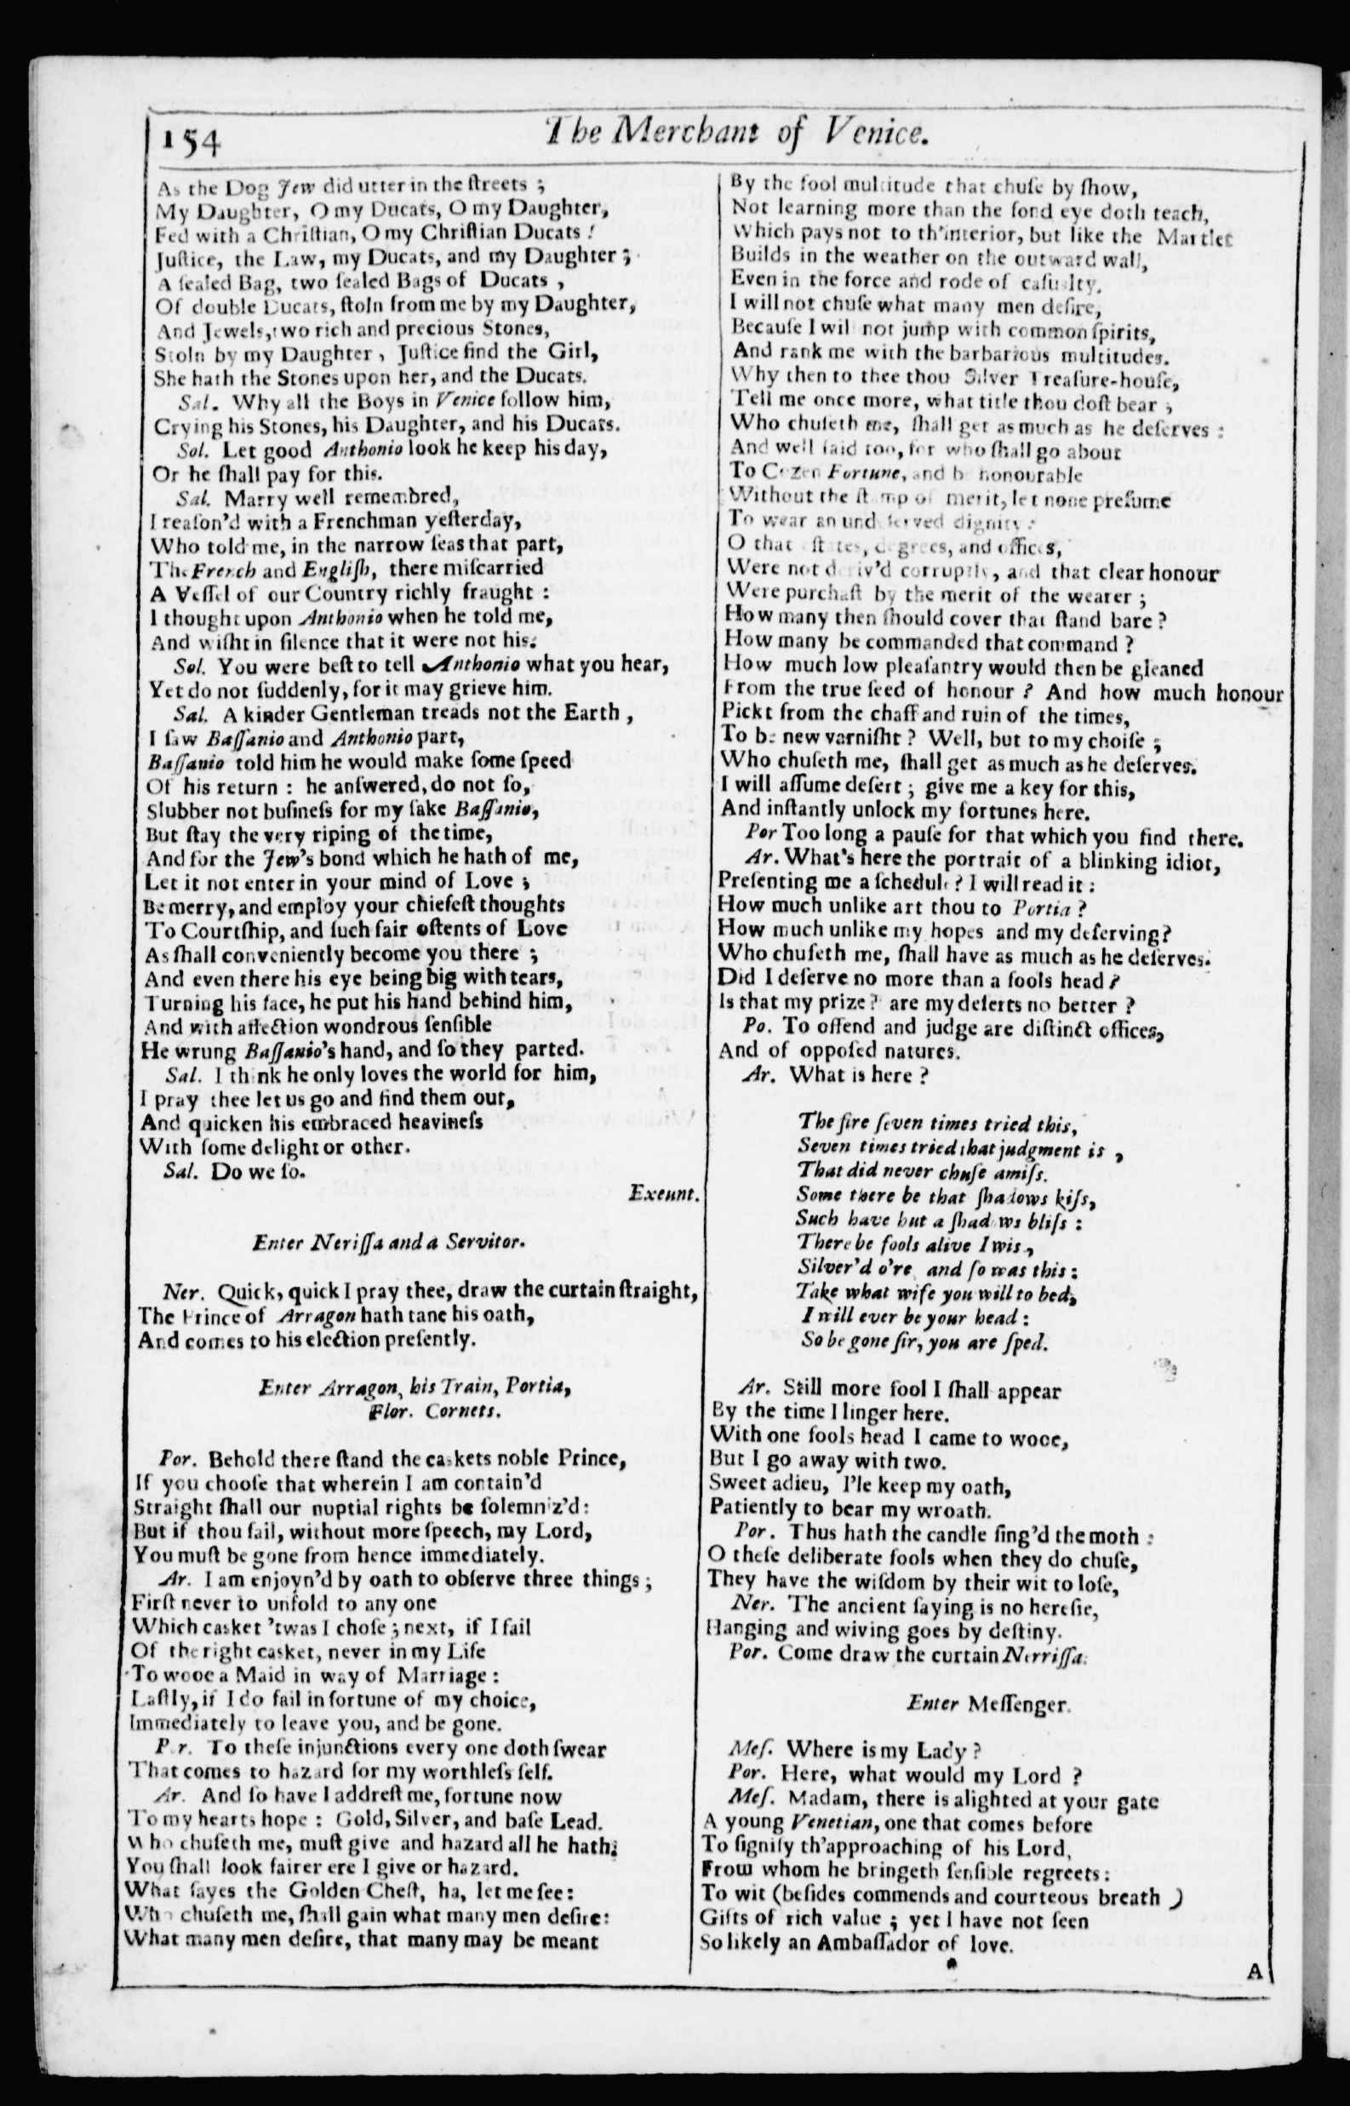 154
The Merchant of Venice.
As the Dog Jew did utter in the ſtreets ;
My Daughter, O my Ducats, O my Daughter,
Fed with a Chriſtian, O my Chriſtian Ducats !
Juſtice, the Law, my Ducats, and my Daughter ;
A ſealed Bag, two ſealed Bags of Ducats ,
Of double Ducats, ſtoln from me by my Daughter,
And Jewels, two rich and precious Stones,
Stoln by my Daughter , Juſtice find the Girl,
She hath the Stones upon her, and the Ducats.
Sal. Why all the Boys in Venice follow him,
Crying his Stones, his Daughter, and his Ducats.
Sol. Let good Anthonio look he keep his day,
Or he ſhall pay for this.
Sal. Marry well remembred,
I reaſon'd with a Frenchman yeſterday,
Who told me, in the narrow ſeas that part,
The French and Engliſh, there miſcarried
A Veſſel of our Country richly fraught :
I thought upon Anthonio when he told me,
And wiſht in ſilence that it were not his.
Sol. You were beſt to tell Anthonio what you hear,
Yet do not ſuddenly, for it may grieve him.
Sal. A kinder Gentleman treads not the Earth ,
I ſaw Baſſanio and Anthonio part,
Baſſanio told him he would make ſome ſpeed
Of his return : he anſwered, do not ſo,
Slubber not buſineſs for my ſake Baſſanio,
But ſtay the very riping of the time,
And for the Jew's bond which he hath of me,
Let it not enter in your mind of Love ;
Be merry, and employ your chiefeſt thoughts
To Courtſhip, and ſuch fair oſtents of Love
As ſhall conveniently become you there ;
And even there his eye being big with tears,
Turning his face, he put his hand behind him,
And with affection wondrous ſenſible
He wrung Baſſanio's hand, and ſo they parted.
Sal. I think he only loves the world for him,
I pray thee let us go and find them out,
And quicken his embraced heavineſs
With ſome delight or other.
Sal. Do we ſo.
Exeunt.
Enter Neriſſa and a Servitor.
Ner. Quick, quick I pray thee, draw the curtain ſtraight,
The Prince of Arragon hath tane his oath,
And comes to his election preſently.
Enter Arragon, his Train, Portia,
Flor. Cornets.
Por. Behold there ſtand the caskets noble Prince,
If you chooſe that wherein I am contain'd
Straight ſhall our nuptial rights be ſolemniz'd:
But if thou fail, without more ſpeech, my Lord,
You muſt be gone from hence immediately.
Ar. I am enjoyn'd by oath to obſerve three things ;
Firſt never to unfold to any one
Which casket 'twas I choſe ; next, if I fail
Of the right casket, never in my Life
To wooe a Maid in way of Marriage :
Laſtly, if I do fail in fortune of my choice,
Immediately to leave you, and be gone.
P r. To theſe injunctions every one doth ſwear
That comes to hazard for my worthleſs ſelf.
Ar. And ſo have I addreſt me, fortune now
To my hearts hope : Gold, Silver, and baſe Lead.
Who chuſeth me, muſt give and hazard all he hath;
You ſhall look fairer ere I give or hazard.
What ſayes the Golden Cheſt, ha, let me ſee:
Who chuſeth me, ſhall gain what many men deſire:
What many men deſire, that many may be meant
By the fool multitude that chuſe by ſhow,
Not learning more than the fond eye doth teach,
Which pays not to th'interior, but like the Martlet
Builds in the weather on the outward wall,
Even in the force and rode of caſualty.
I will not chuſe what many men deſire,
Becauſe I wil not jump with common ſpirits,
And rank me with the barbarious multitudes.
Why then to thee thou Silver Treaſure-houſe,
Tell me once more, what title thou doſt bear ;
Who chuſeth me, ſhall get as much as he deſerves :
And well ſaid too, for who ſhall go about
To Cozen Fortune, and be honourable
Without the ſtamp of merit, let none preſume
To wear an undeſerved dignity :
O that ſtates, degrees, and offices,
Were not deriv'd corruptly, and that clear honour
Were purchaſt by the merit of the wearer ;
How many then ſhould cover that ſtand bare ?
How many be commanded that command ?
How much low pleaſantry would then be gleaned
From the true ſeed of honour ? And how much honour
Pickt from the chaff and ruin of the times,
To be new varniſht ? Well, but to my choiſe ;
Who chuſeth me, ſhall get as much as he deſerves.
I will aſſume deſert ; give me a key for this,
And inſtantly unlock my fortunes here.
Por Too long a pauſe for that which you find there.
Ar. What's here the portrait of a blinking idiot,
Preſenting me a ſchedule ? I will read it :
How much unlike art thou to Portia ?
How much unlike my hopes and my deſerving?
Who chuſeth me, ſhall have as much as he deſerves.
Did I deſerve no more than a fools head ?
Is that my prize ? are my deſerts no better ?
Po. To offend and judge are diſtinct offices,
And of oppoſed natures.
Ar. What is here ?
The fire ſeven times tried this,
Seven times tried that judgment is ,
That did never chuſe amiſs.
Some there be that ſhadows kiſs,
Such have but a ſhadows bliſs :
There be fools alive I wis ,
Silver'd o're, and ſo was this :
Take what wife you will to bed,
I will ever be your head :
So be gone ſir, you are ſped.
Ar. Still more fool I ſhall appear
By the time I linger here.
With one fools head I came to wooe,
But I go away with two.
Sweet adieu, I'le keep my oath,
Patiently to bear my wroath.
Por. Thus hath the candle ſing'd the moth :
O theſe deliberate fools when they do chuſe,
They have the wiſdom by their wit to loſe,
Ner. The ancient ſaying is no hereſie,
Hanging and wiving goes by deſtiny.
Por. Come draw the curtain Nerriſſa.
Enter Meſſenger.
Meſ. Where is my Lady ?
Por. Here, what would my Lord ?
Meſ. Madam, there is alighted at your gate
A young Venetian, one that comes before
To ſignify th'approaching of his Lord,
From whom he bringeth ſenſible regreets :
To wit (beſides commends and courteous breath )
Gifts of rich value ; yet I have not ſeen
So likely an Ambaſſador of love.
A